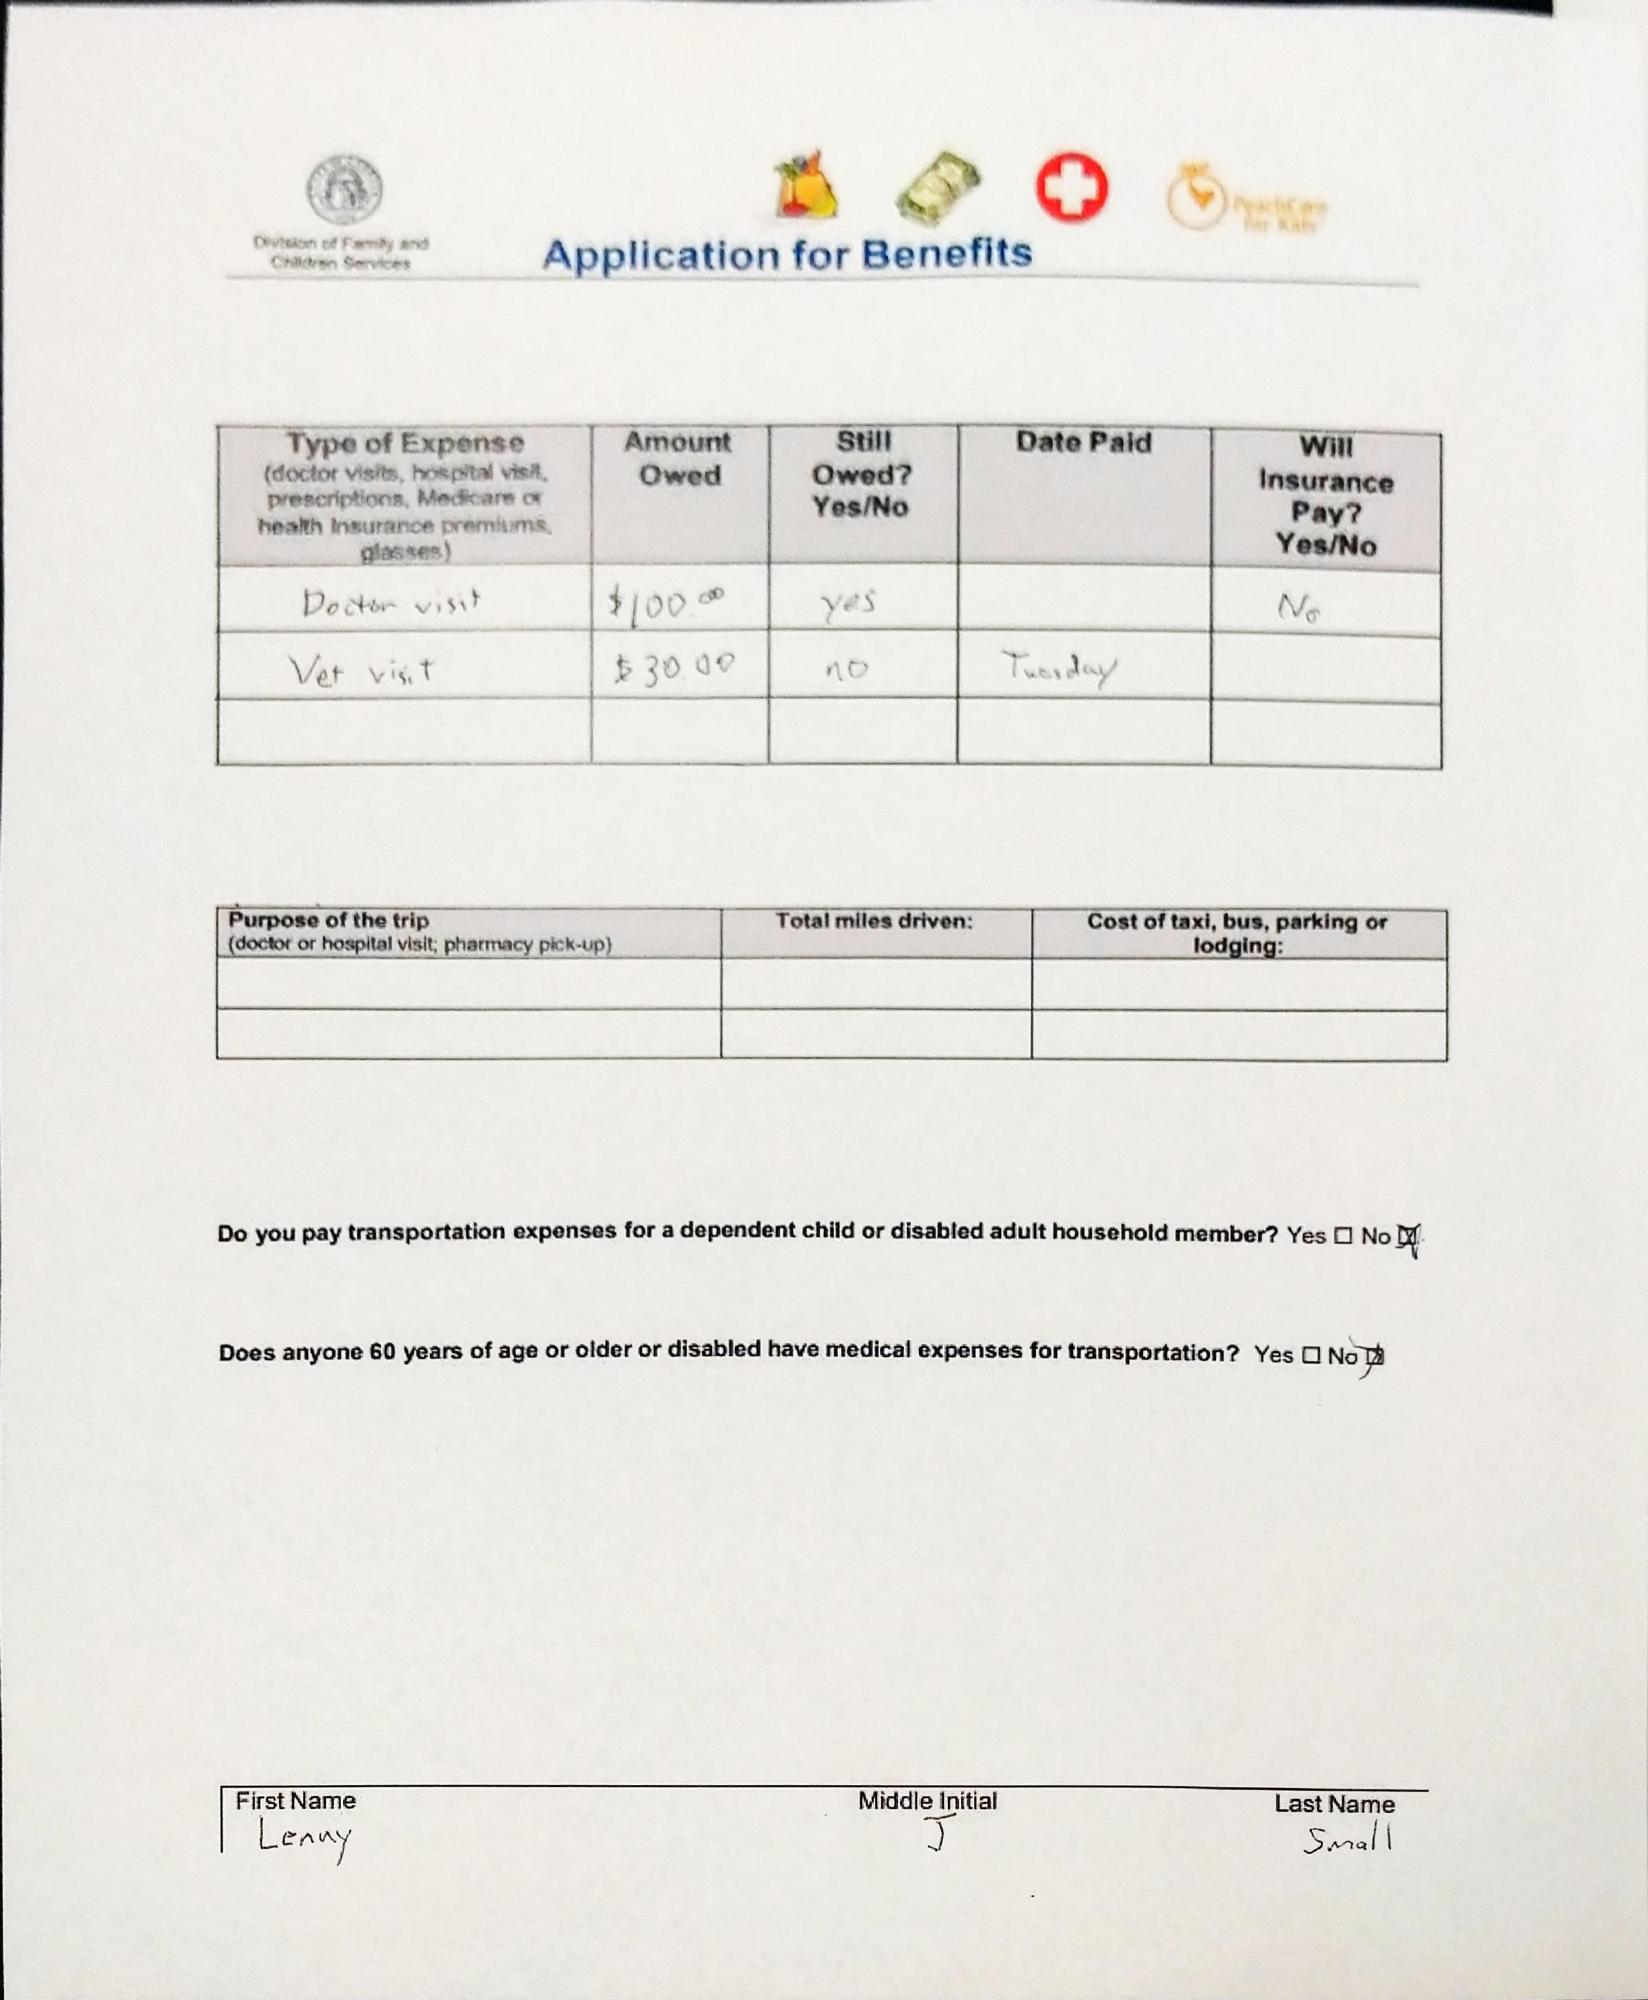 Division of Family and
Children Services
PeachCare
for Kids
Application for Benefits
Type of Expense
(doctor visits, hospital visit,
prescriptions, Medicare or
health Insurance premiums,
glasses)
Amount
Owed
Still
Owed?
Yes/No
Date Paid
Will
Insurance
Pay?
Yes/No
Doctor visit $100.00 yes No
Vet visit $30.00 no Tuesday
Purpose of the trip
(doctor or hospital visit; pharmacy pick-up)
Total miles driven:
Cost of taxi, bus, parking or
lodging:
Do you pay transportation expenses for a dependent child or disabled adult household member? Yes ☐ No ☒
Does anyone 60 years of age or older or disabled have medical expenses for transportation? Yes ☐ No ☒
First Name Middle Initial Last Name
Lenny J Small